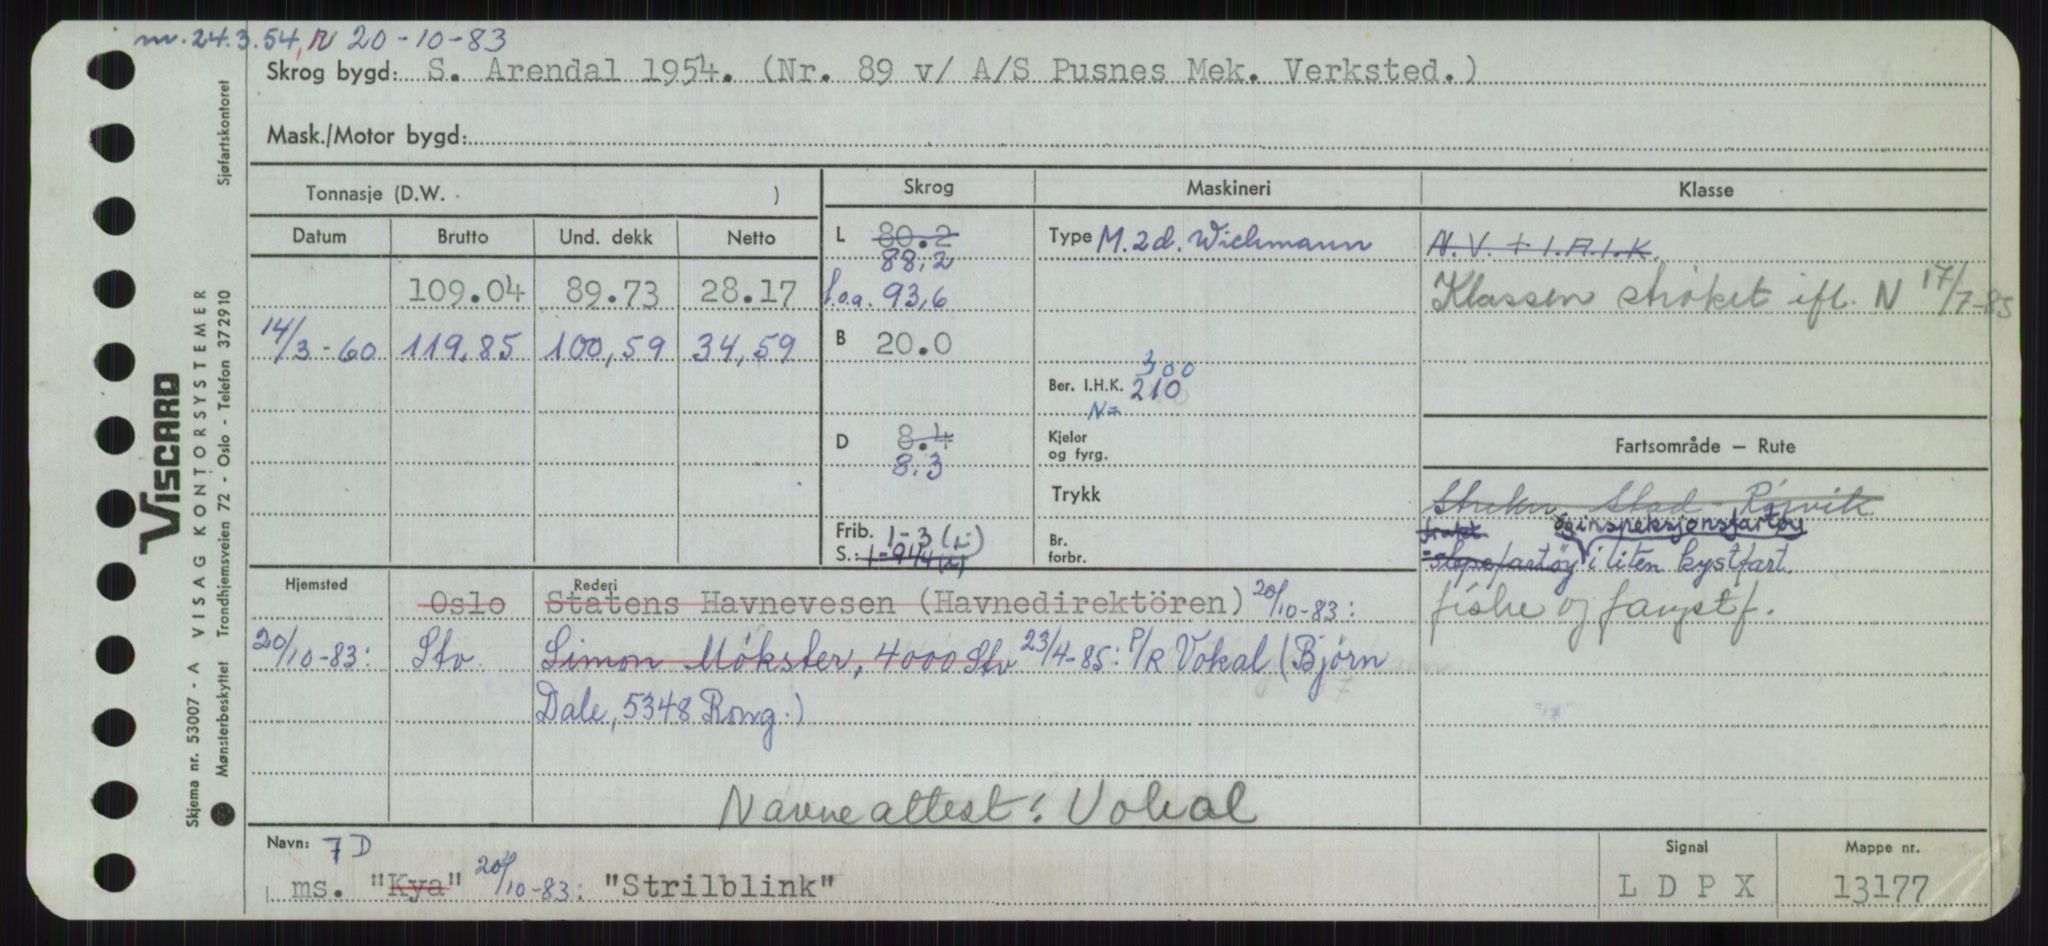 m. 24.3.54, N 20-10-83
Skrog bygd: S. Arendal 1954. (Nr. 89 v/ A/S Pusnes Mek. Verksted.)
Mask./Motor bygd:
Tonnasje (D.W. )
Skrog
Maskineri
Klasse
Datum Brutto Und. dekk Netto
109.04 89.73 28.17
14/3-60 119.85 100,59 34,59
L 80.2
88,2
l.o.a. 93,6
B 20.0
D 8.4
8.3
Frib. 1-3 (L)
S.:
Type M. 2 d. Wichmann
300
Ber. I.H.K. 210
N=
Kjeler
og fyrg.
Trykk
Br.
forbr.
N.V. + I.A.I.K.
Klassen strøket ifl. N 17/7-85
Fartsområde — Rute
Strekn. Stad - Rørvik
frakt og inspeksjonsfartøy
-slepefartøy i liten kystfart.
fiske og fangstf.
Hjemsted Rederi
Oslo Statens Havnevesen (Havnedirektören) 20/10-83:
20/10-83: Stv Simon Mökster, 4000 Stv 23/4-85: P/R Vokal (Bjørn
Dale, 5348 Rong.)
Navneattest: Vokal
Navn: 7D
ms. "Kya" 20/10-83: "Strilblink"
Signal
L D P X
Mappe nr.
13177
Skjema nr. 53007 - A VISAG KONTORSYSTEMER
VISCARD
Mønsterbeskyttet Trondhjemsveien 72 - Oslo - Telefon 372910 Sjøfartskontoret